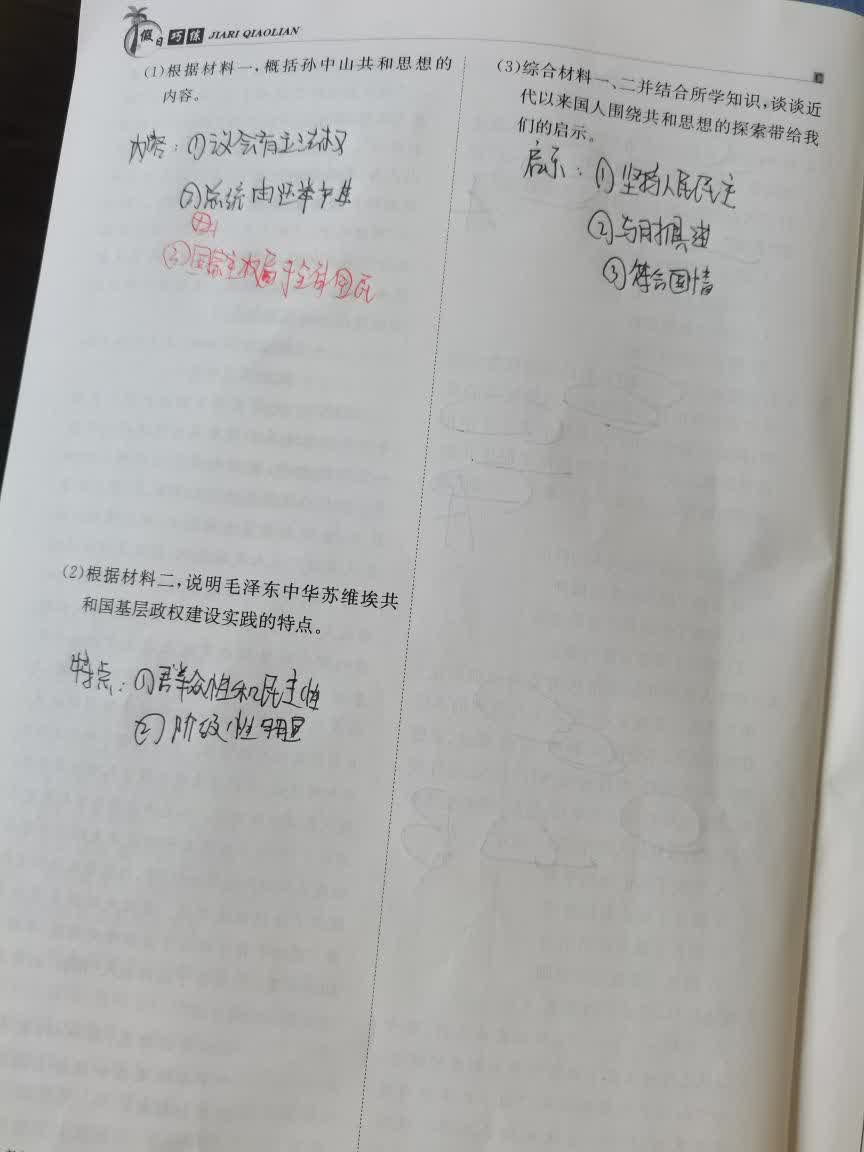 假日巧练 JIARI QIAOLIAN
(1)根据材料一,概括孙中山共和思想的
内容。
内容:①议会有立法权
②总统由选举产生
③国家主权属于全体国民
(2)根据材料二,说明毛泽东中华苏维埃共
和国基层政权建设实践的特点。
特点:①群众性和民主性
②阶级性明显
(3)综合材料一、二并结合所学知识,谈谈近
代以来国人围绕共和思想的探索带给我
们的启示。
启示:①坚持人民民主
②与时俱进
③符合国情